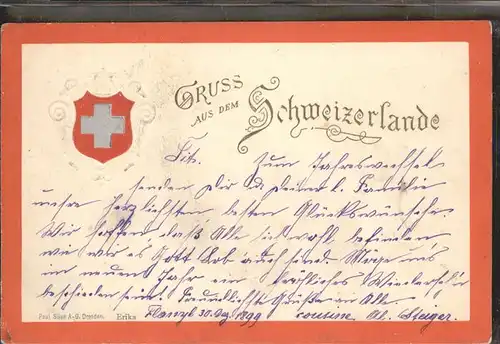 GRUSS
AUS DEM
Schweizerlande
Zum Jahreswechsel
senden Dir & Deiner l. Familie
unsre herzlichsten, besten Glückwünsche.
Wir hoffen daß Alle sich wohl befinden
wie wir es Gott Lob auch sind. Möge uns
im neuen Jahr ein fröhliches Wiederseh'n
beschieden sein. Freundlichste Grüße an Alle
Paul Süss A.-G. Dresden. Erika 30. Dez. 1899 cousine Al. Steiger.